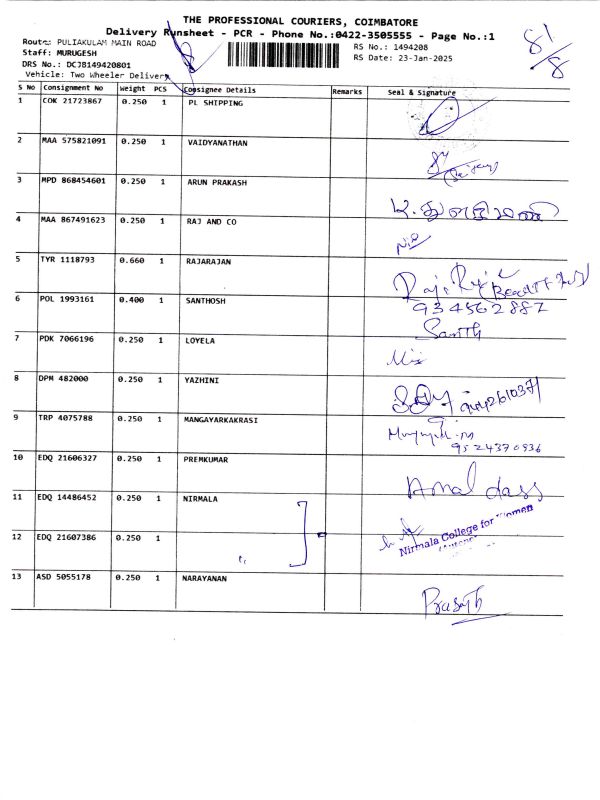 THE PROFESSIONAL COURIERS, COIMBATORE
Delivery Runsheet - PCR - Phone No.:0422-3505555 - Page No.:1
81/8
Route: PULIAKULAM MAIN ROAD
RS No.: 1494208
Staff: MURUGESH
RS Date: 23-Jan-2025
DRS No.: DCJB149420801
Vehicle: Two Wheeler Delivery
S No Consignment No Weight PCS Consignee Details Remarks Seal & Signature
1 COK 21723867 0.250 1 PL SHIPPING
2 MAA 575821091 0.250 1 VAIDYANATHAN
3 MPD 868454601 0.250 1 ARUN PRAKASH
4 MAA 867491623 0.250 1 RAJ AND CO
5 TYR 1118793 0.660 1 RAJARAJAN
6 POL 1993161 0.400 1 SANTHOSH 934562887
Santh
7 PDK 7066196 0.250 1 LOYELA
8 DPM 482000 0.250 1 YAZHINI
9 TRP 4075788 0.250 1 MANGAYARKAKRASI
9524370936
10 EDQ 21606327 0.250 1 PREMKUMAR Amal dass
11 EDQ 14486452 0.250 1 NIRMALA
12 EDQ 21607386 0.250 1 Nirmala College for Women
13 ASD 5055178 0.250 1 NARAYANAN Prasath